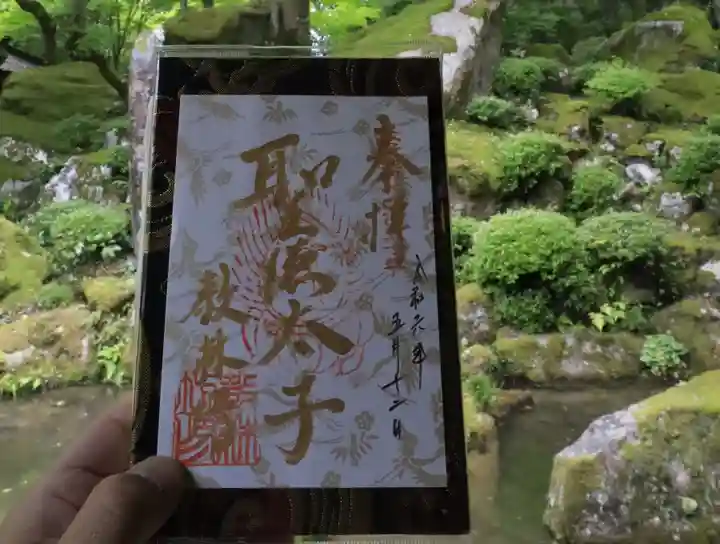 奉拝
令和六年
五月十二日
聖徳太子
教林坊